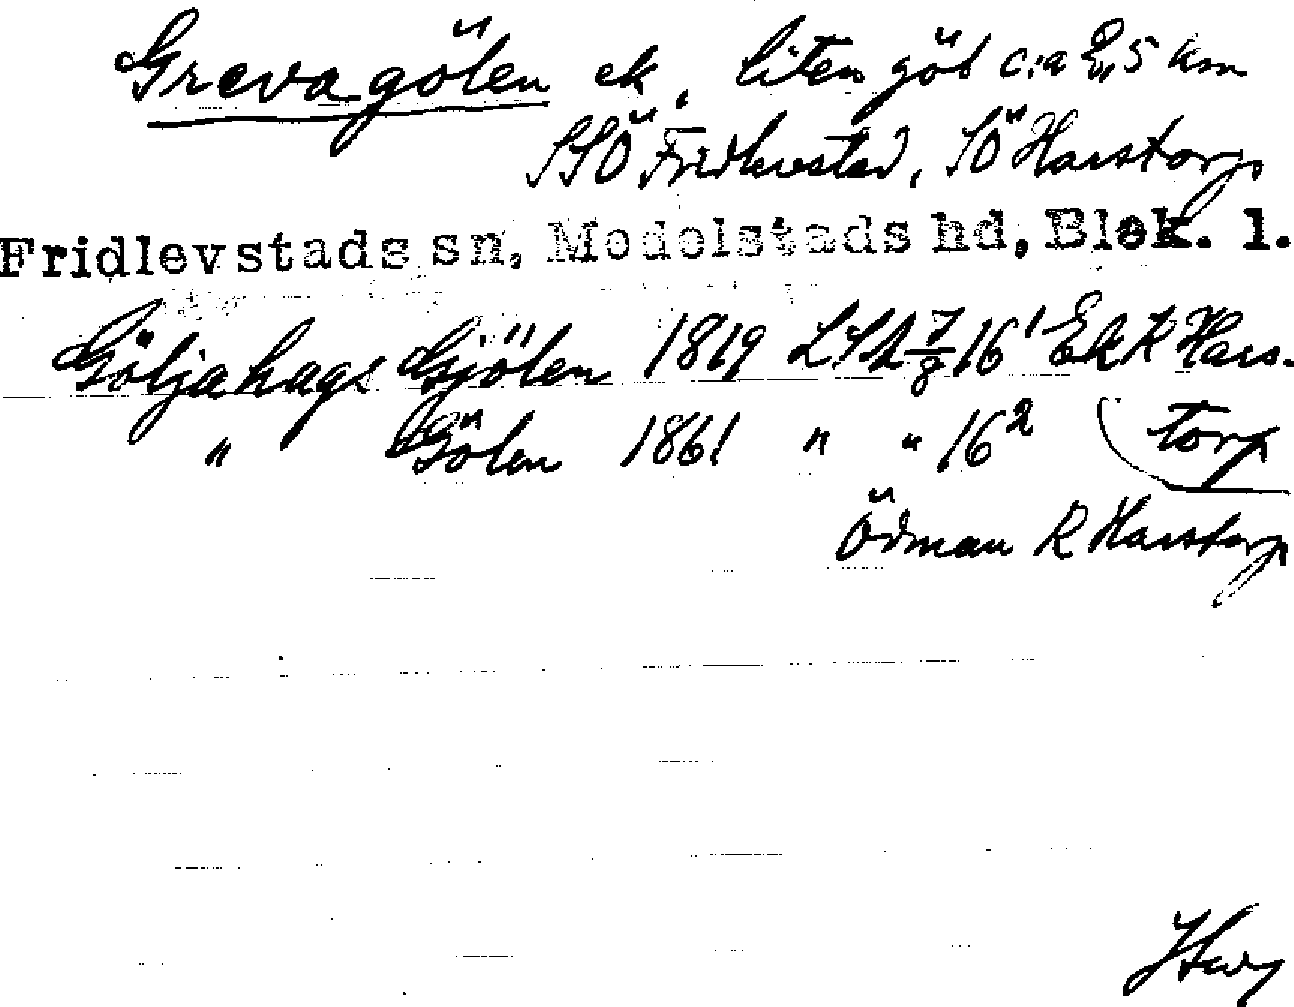 Grevagölen ek, liten göl c:a 2,5 km
SSÖ Fridlevstad, SÖ Harstorp
Fridlevstads sn, Medelstads hd, Blek. l.
Göljahags Gjölen 1819 LSA 7/8 16¹ Ek R Hars-
" Gölen 1861 " " 16² (torp
Ödman R Harstorp